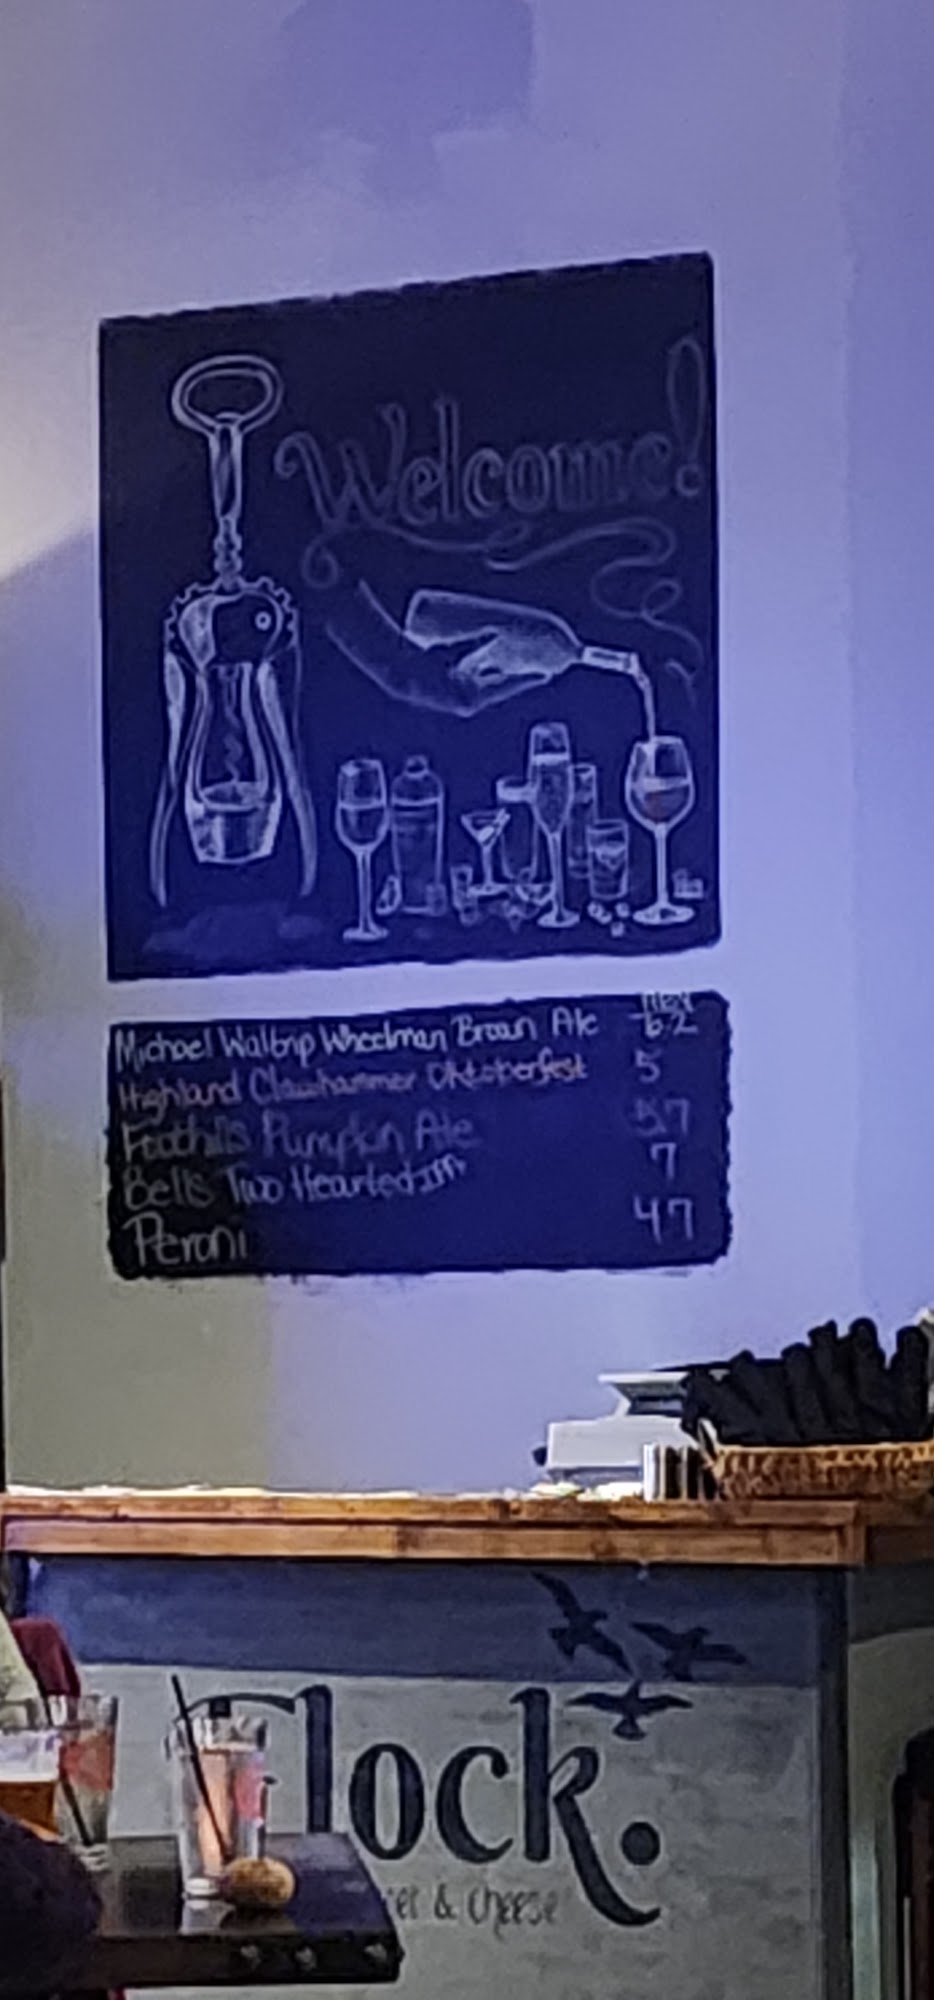 Welcome!
Michael Waltrip Wheelman Brown Ale 6.2
Highland Clawhammer Oktoberfest 5
Foothills Pumpkin Ale 5.7
Bell's Two Hearted 7
Peroni 4.7
Flock.
& Cheese